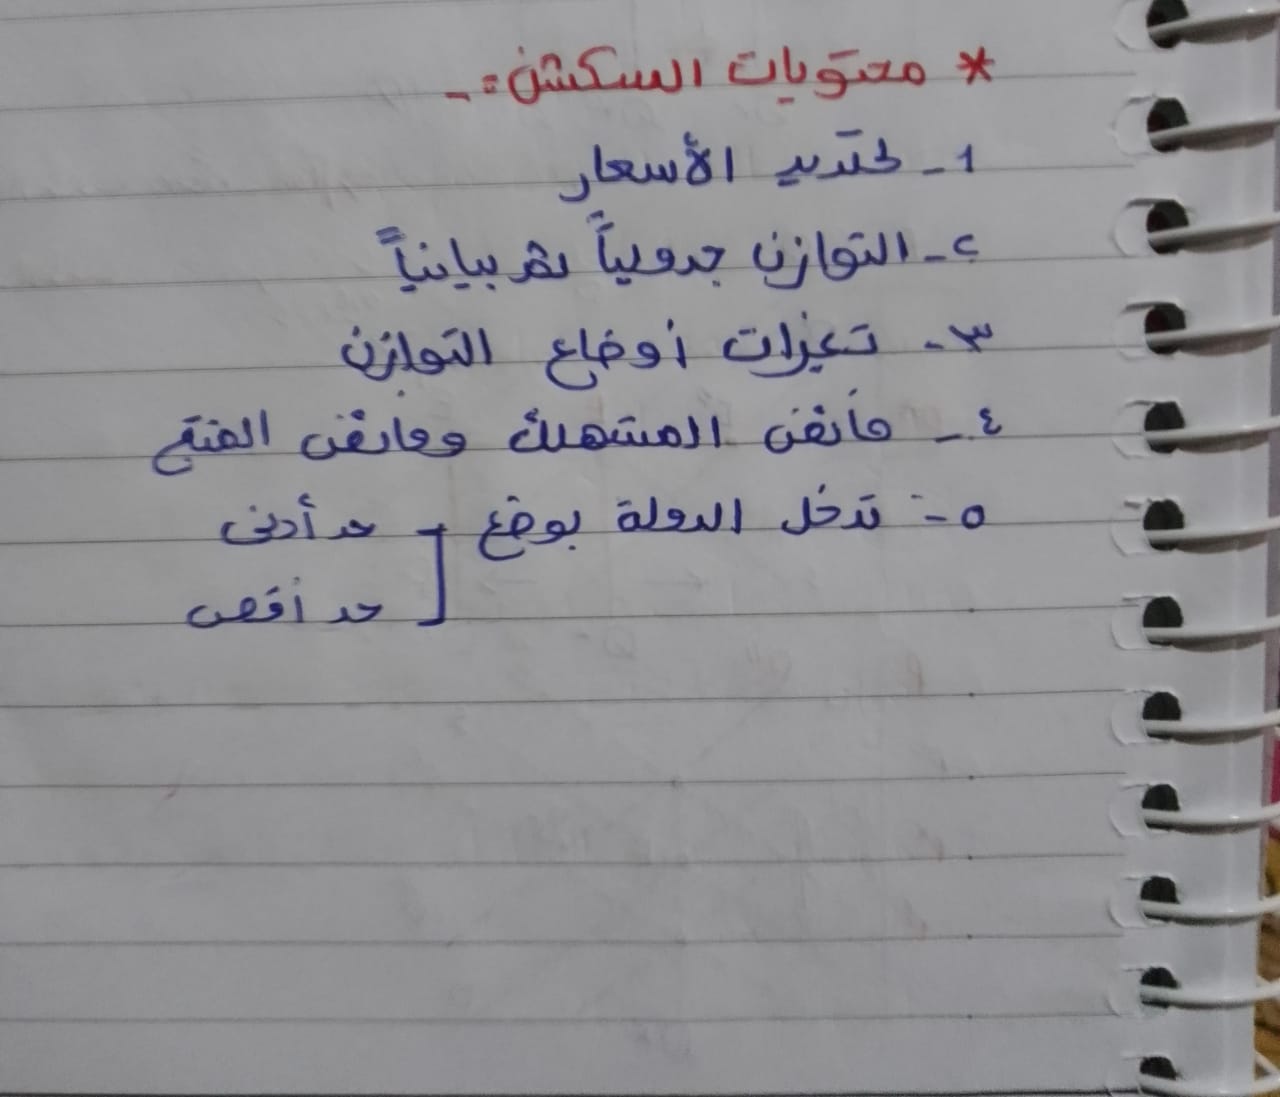 * محتويات السكشن :-
١- تحديد الأسعار
٢- التوازن جدولياً ثم بيانياً
٣- تغيرات أوضاع التوازن
٤- فائض المستهلك وفائض المنتج
٥- تدخل الدولة بوضع حد أدنى
حد أقصى